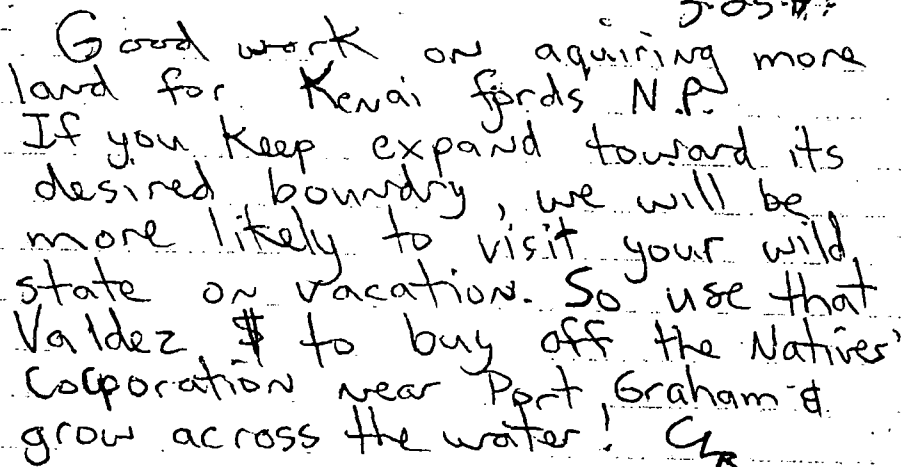 Good work on aquiring more
land for Kenai fjords N.P.
If you keep expand toward its
desired boundry, we will be
more likely to visit your wild
state on vacation. So use that
Valdez $ to buy off the Natives'
Corporation near Port Graham &
grow across the water!